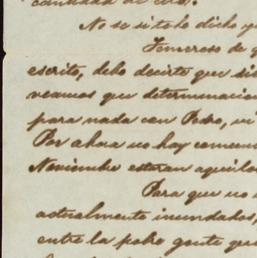 cantidad de
No se si te he dicho
Temeroso de
escrito, debo decirte que si
veamos que determinacion
para nada con Pedro, ni
Por ahora no hay
Noviembre estaran aqui los
Para que no
actualmente inundados,
entre la pobre gente que